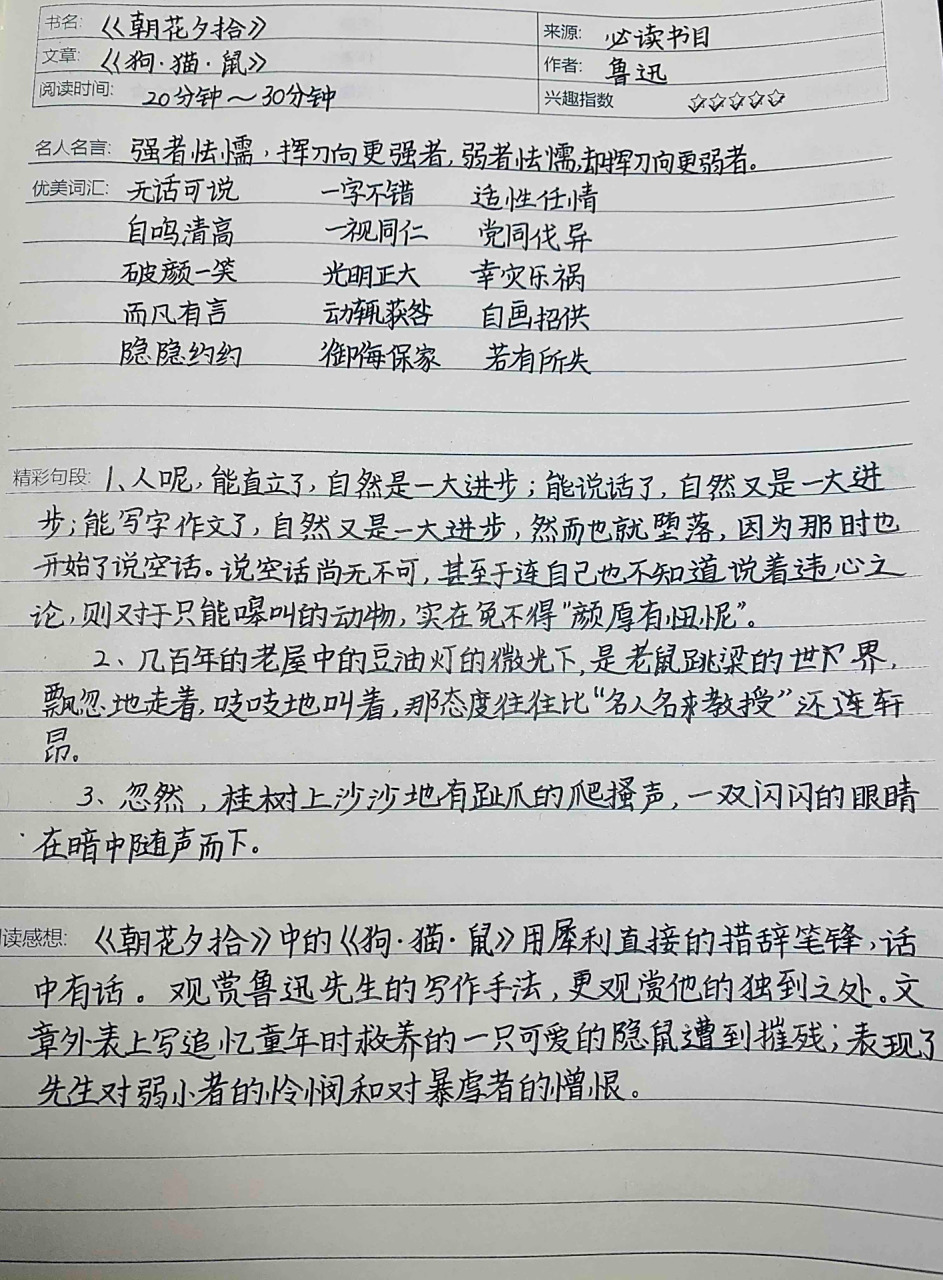 书名: 《朝花夕拾》 来源: 必读书目
文章: 《狗·猫·鼠》 作者: 鲁迅
阅读时间: 20分钟~30分钟 兴趣指数 ☆☆☆☆☆
名人名言: 强者怯懦，挥刀向更强者，弱者怯懦，却挥刀向更弱者。
优美词汇: 无话可说 一字不错 适性任情
自鸣清高 一视同仁 党同伐异
破颜一笑 光明正大 幸灾乐祸
而凡有言 动辄获咎 自画招供
隐隐约约 御侮保家 若有所失
精彩句段: 1、人呢，能直立了，自然是一大进步；能说话了，自然又是一大进
步；能写字作文了，自然又是一大进步，然而也就堕落，因为那时也
开始了说空话。说空话尚无不可，甚至于连自己也不知道说着违心之
论，则对于只能嗥叫的动物，实在免不得“颜厚有忸怩”。
2、几百年的老屋中的豆油灯的微光下，是老鼠跳梁的世界，
飘忽地走着，吱吱地叫着，那态度往往比“名人名来教授”还连轩
昂。
3、忽然，桂树上沙沙地有趾爪的爬搔声，一双闪闪的眼睛
在暗中随声而下。
读感想: 《朝花夕拾》中的《狗·猫·鼠》用犀利直接的措辞笔锋，话
中有话。观赏鲁迅先生的写作手法，更观赏他的独到之处。文
章外表上写追忆童年时救养的一只可爱的隐鼠遭到摧残；表现了
先生对弱小者的怜悯和对暴虐者的憎恨。